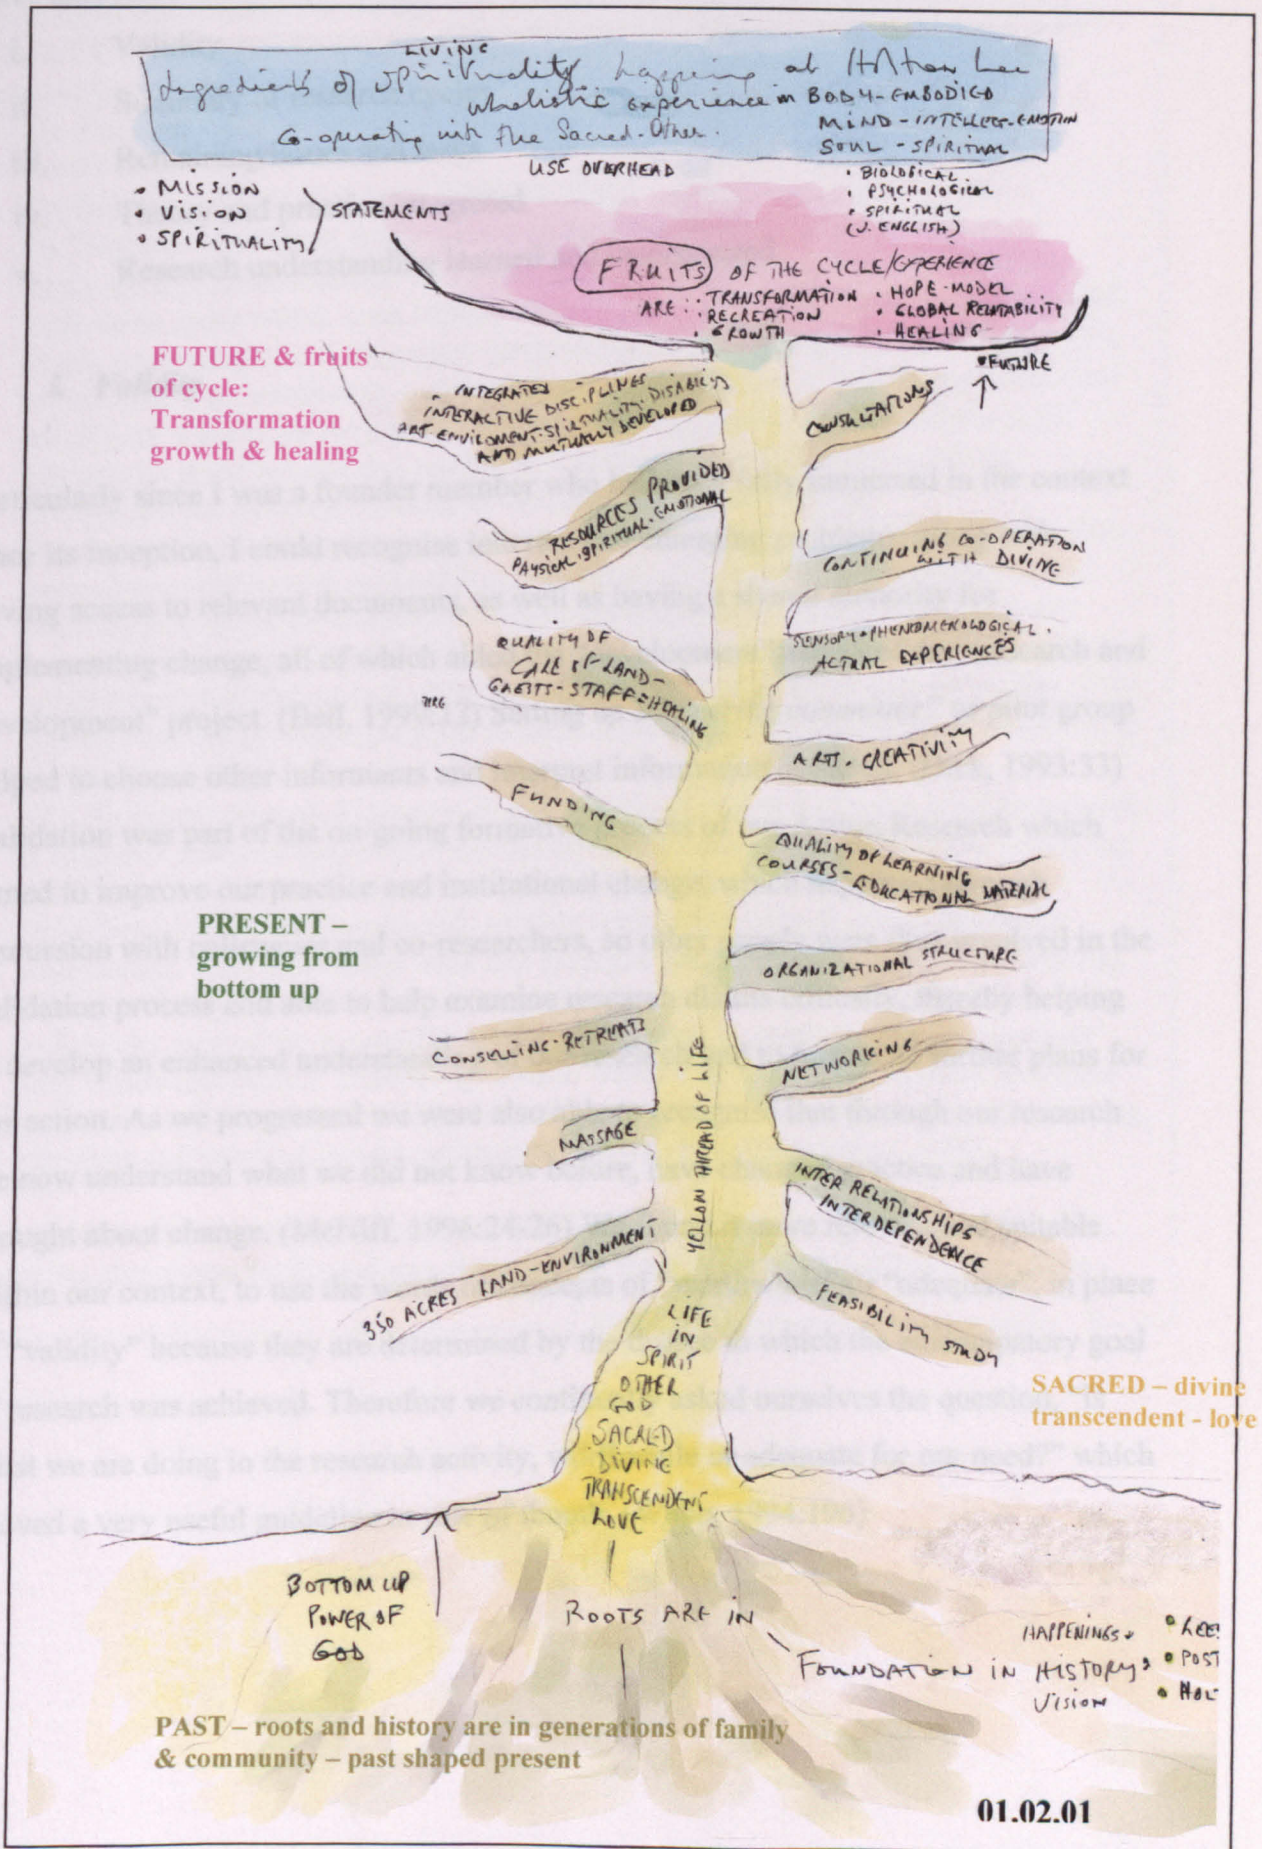 LIVING
Ingredients of Spirituality happening at Holton Lee
wholistic experience in BODY-EMBODIED
MIND - INTELLECT-EMOTION
Co-operating with the Sacred-Other.
SOUL - SPIRITUAL
USE OVERHEAD
• MISSION
• VISION
• SPIRITUALITY
STATEMENTS
• BIOLOGICAL
• PSYCHOLOGICAL
• SPIRITUAL
(J. ENGLISH)
FRUITS OF THE CYCLE/EXPERIENCE
ARE : • TRANSFORMATION
• RECREATION
• GROWTH
• HOPE-MODEL
• GLOBAL RELATABILITY
• HEALING
• FUTURE
FUTURE & fruits
of cycle:
Transformation
growth & healing
• INTEGRATED
INTERACTIVE DISCIPLINES
ART-ENVIROMENT-SPIRITUALITY-DISABILITY
AND MUTUALLY DEVELOPED
CONSULTATIONS
RESOURCES PROVIDED
PHYSICAL-SPIRITUAL-EMOTIONAL
CONTINUING CO-OPERATION
WITH DIVINE
QUALITY OF
CARE OF LAND-
GUESTS-STAFF=HEALING
SENSORY+PHENOMENOLOGICAL.
ACTUAL EXPERIENCES
ARTS. CREATIVITY
FUNDING
QUALITY OF LEARNING
COURSES-EDUCATIONAL MATERIAL
PRESENT –
growing from
bottom up
ORGANIZATIONAL STRUCTURE
CONSELLING-RETREATS
NETWORKING
MASSAGE
YELLOW THREAD OF LIFE
INTER RELATIONSHIPS
INTERDEPENDENCE
350 ACRES LAND-ENVIRONMENT
FEASIBILITY STUDY
LIFE
IN
SPIRIT
OTHER
GOD
SACRED
DIVINE
TRANSCENDENT
LOVE
SACRED – divine
transcendent - love
BOTTOM UP
POWER OF
GOD
ROOTS ARE IN
FOUNDATION IN HISTORY,
HAPPENINGS
VISION
• LEE
• POST
• HOL
PAST – roots and history are in generations of family
& community – past shaped present
01.02.01